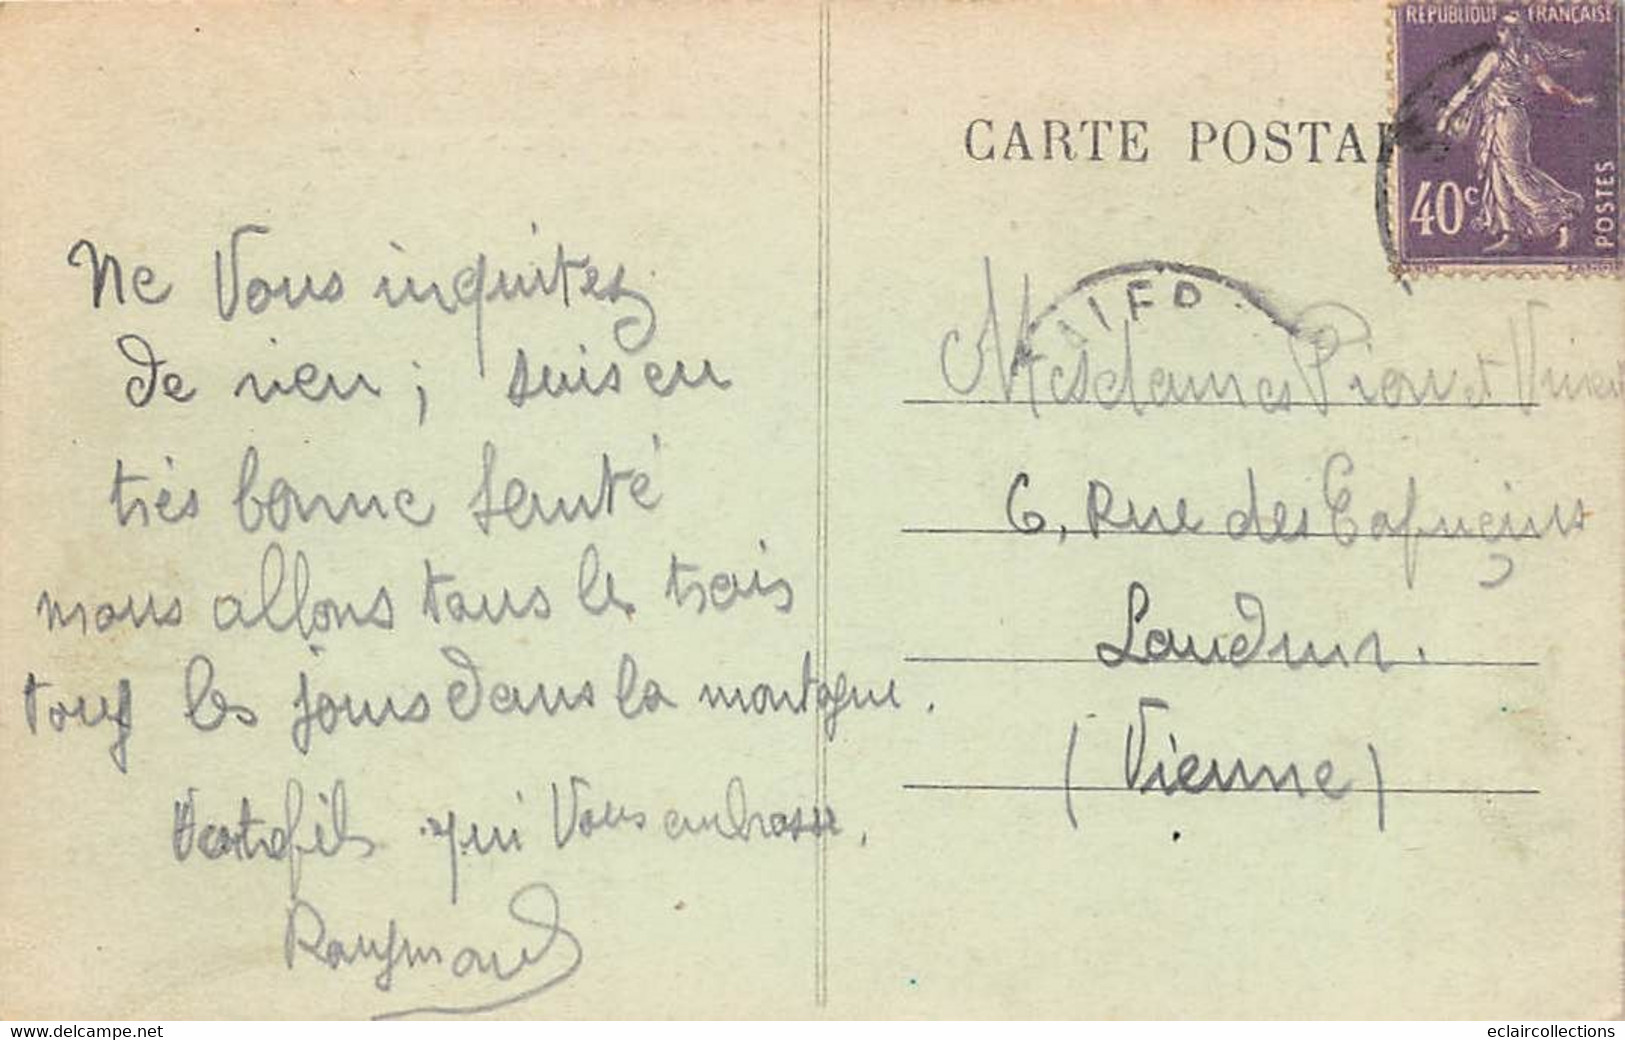 RÉPUBLIQUE FRANÇAISE
40c
POSTES
CARTE POSTA
Ne Vous inquitez
de rien ; suis en
très bonne santé
nous allons tous les trois
tous les jours dans la montagne.
Votre fils qui Vous embrasse.
Raymond
Mesdames Piau et
6, Rue des Capuçins
Loudun.
(Vienne)
www.delcampe.net
eclaircollections